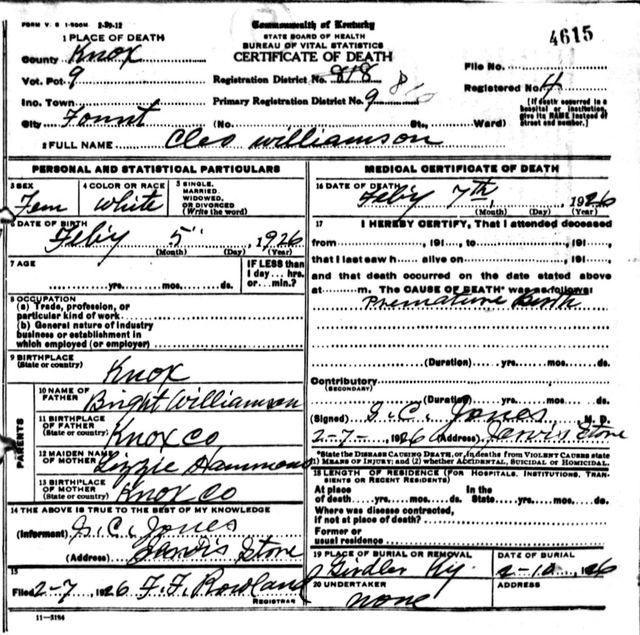 FORM V. S 1-500M 2-20-12
Commonwealth of Kentucky
STATE BOARD OF HEALTH
BUREAU OF VITAL STATISTICS
CERTIFICATE OF DEATH
4615
1 PLACE OF DEATH
County Knox
Vot. Pct 9
Registration District No. 818
File No.
Ino. Town
Primary Registration District No. 9
Registered No. 4
City Fount (No. St., Ward)
[If death occurred in a hospital or institution, give its NAME instead of street and number.]
2 FULL NAME Cleo Williamson
PERSONAL AND STATISTICAL PARTICULARS
3 SEX
Fem
4 COLOR OR RACE
White
5 SINGLE, MARRIED, WIDOWED, OR DIVORCED (Write the word)
6 DATE OF BIRTH
Feby 5 1926
(Month) (Day) (Year)
7 AGE
yrs. mos. ds.
IF LESS than 1 day... hrs. or... min.?
8 OCCUPATION
(a) Trade, profession, or particular kind of work
(b) General nature of industry business or establishment in which employed (or employer)
9 BIRTHPLACE (State or country)
Knox
PARENTS
10 NAME OF FATHER Bright Williamson
11 BIRTHPLACE OF FATHER (State or country) Knox Co
12 MAIDEN NAME OF MOTHER Lizzie Hammons
13 BIRTHPLACE OF MOTHER (State or country) Knox Co
14 THE ABOVE IS TRUE TO THE BEST OF MY KNOWLEDGE
(Informant) G. C. Jones
(Address) Jarvis Store
15
Filed 2-7, 1926 F. F. Rowland
REGISTRAR
11-3184
MEDICAL CERTIFICATE OF DEATH
16 DATE OF DEATH
Feby 7th, 1926
(Month) (Day) (Year)
17 I HEREBY CERTIFY, That I attended deceased
from, 191, to, 191,
that I last saw h alive on, 191,
and that death occurred on the date stated above
at m. The CAUSE OF DEATH* was as follows:
Premature Birth
(Duration) yrs. mos. ds.
Contributory (SECONDARY)
(Duration) yrs. mos. ds.
(Signed) G. C. Jones M. D.
2-7-, 1926 (Address) Jarvis Store
*State the DISEASE CAUSING DEATH, or, in deaths from VIOLENT CAUSES state
1) MEANS OF INJURY; and (2) whether ACCIDENTAL, SUICIDAL or HOMICIDAL.
18 LENGTH OF RESIDENCE (FOR HOSPITALS, INSTITUTIONS, TRANSIENTS OR RECENT RESIDENTS)
At place of death yrs. mos. ds. In the State yrs. mos. ds.
Where was disease contracted, if not at place of death?
Former or usual residence
19 PLACE OF BURIAL OR REMOVAL
Girdler Ky
DATE OF BURIAL
2-10, 1926
20 UNDERTAKER
none
ADDRESS